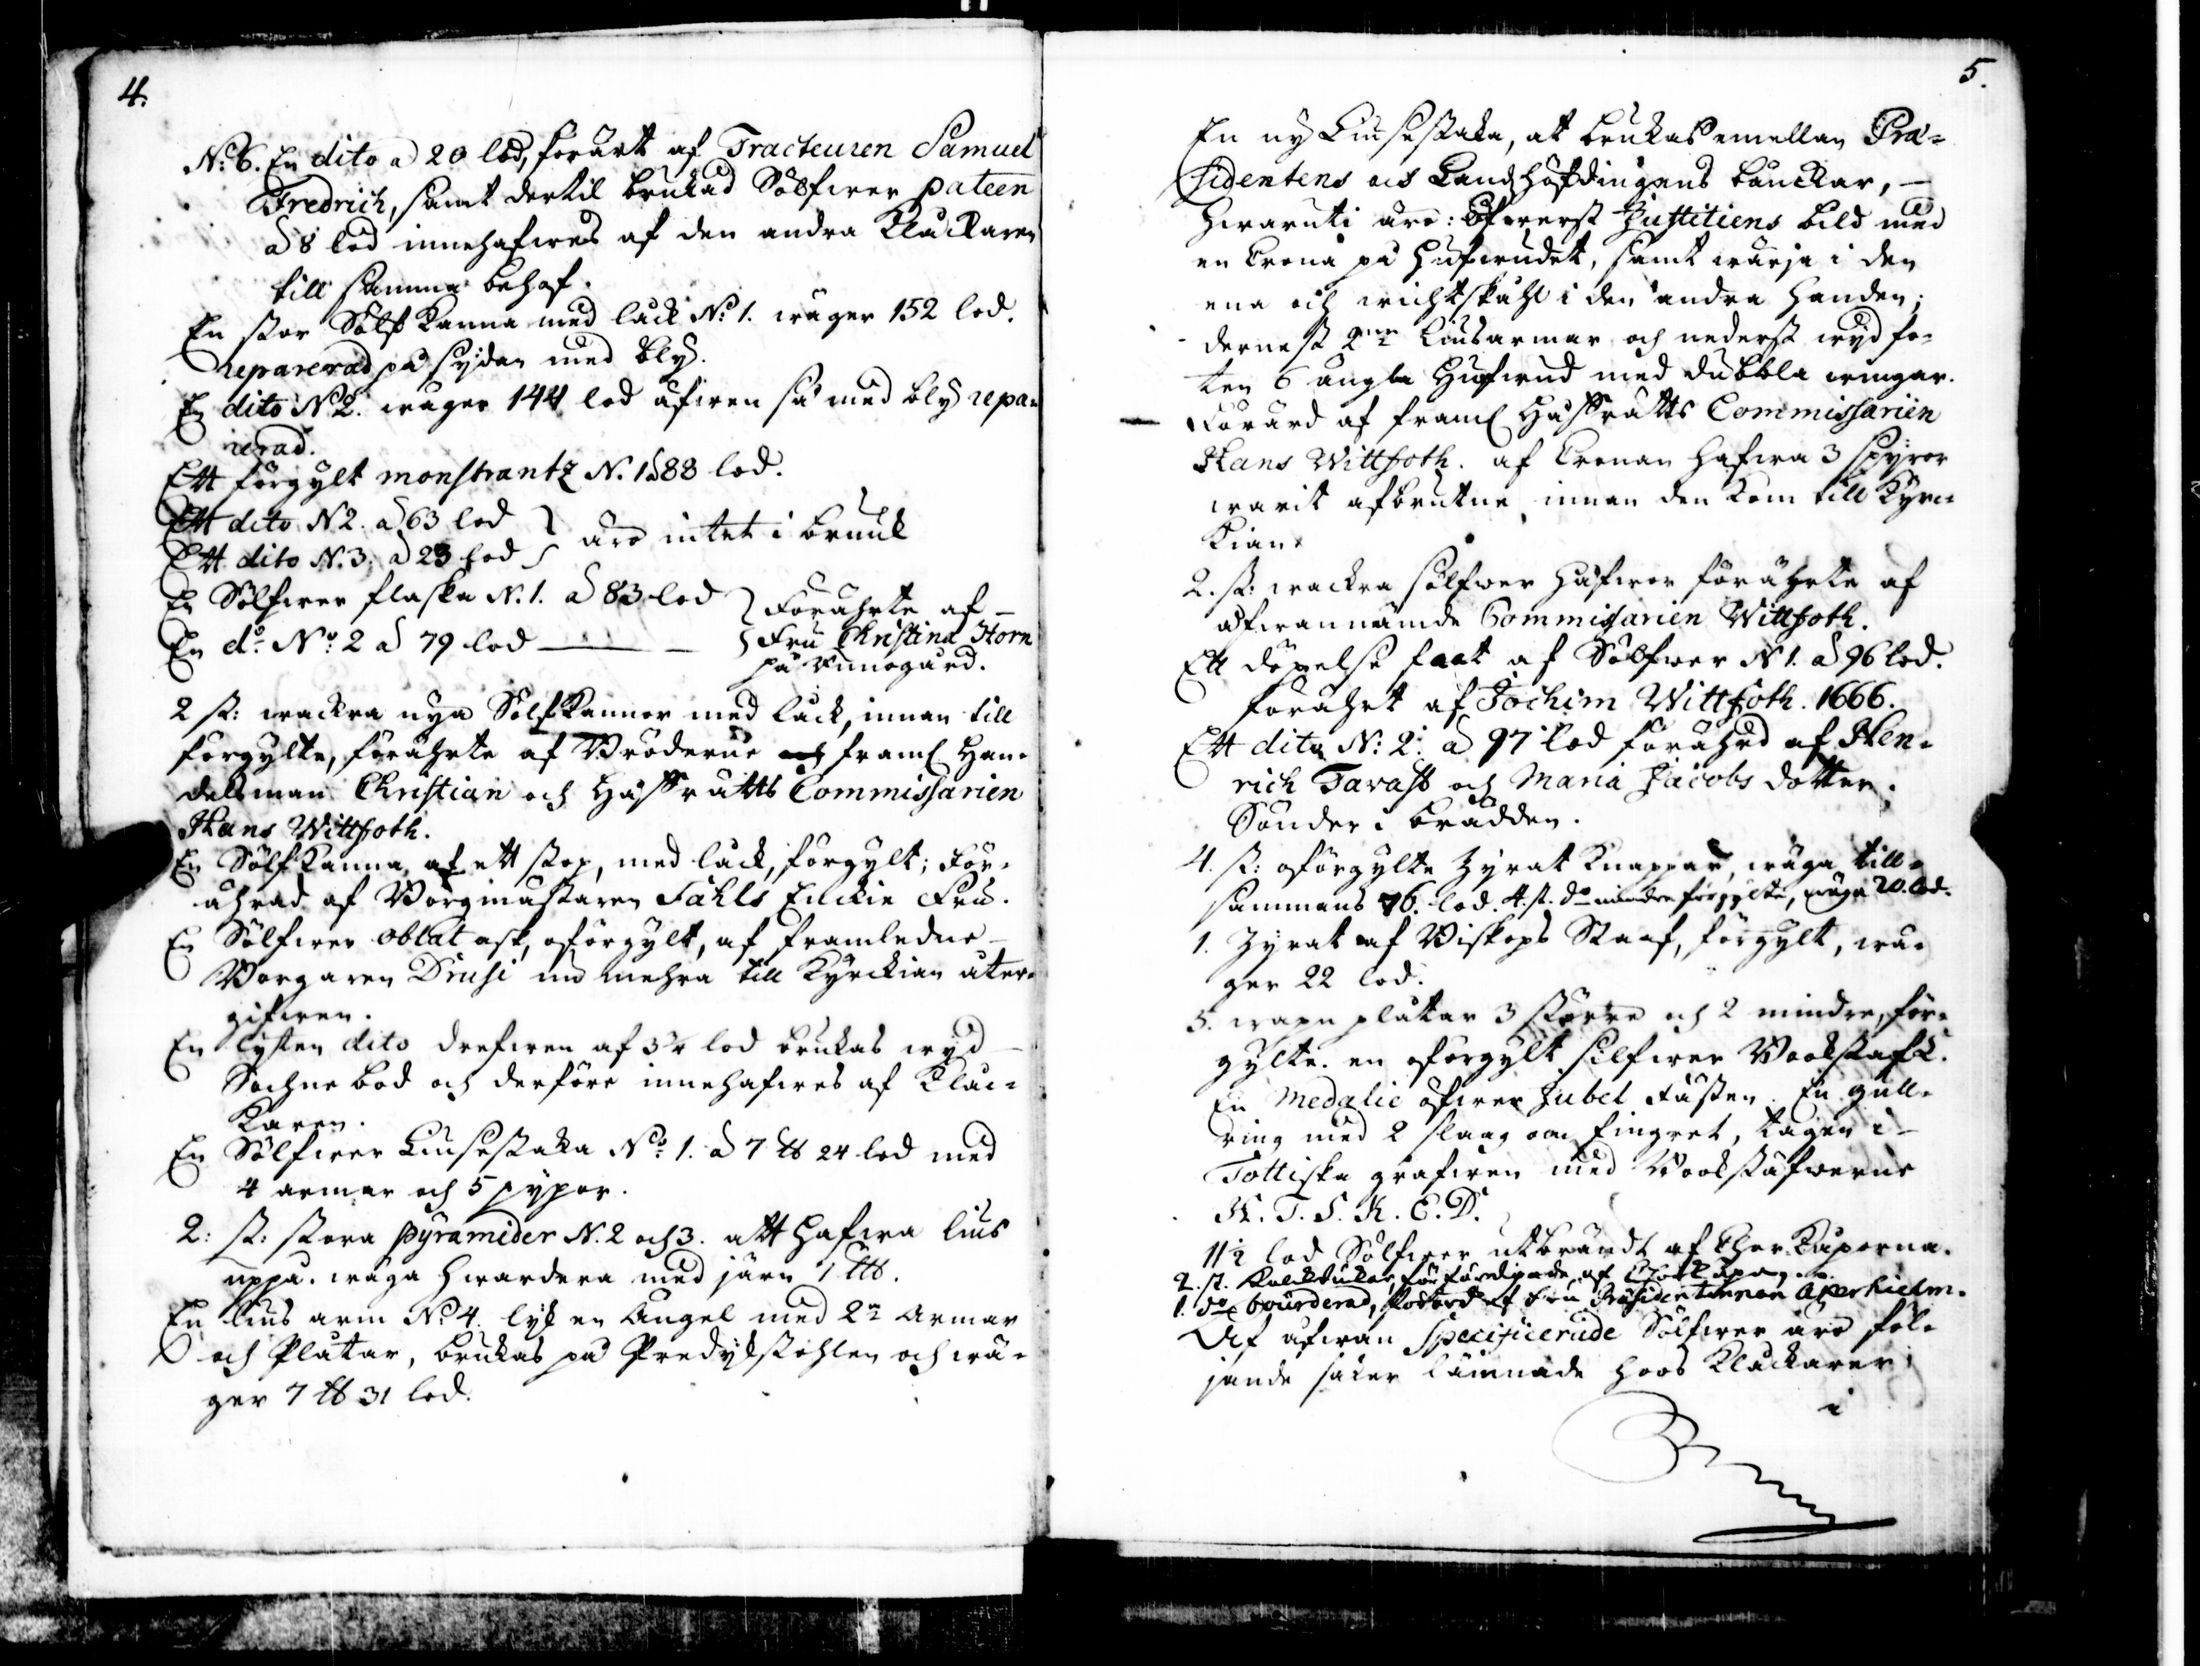 4.
N:6. En dito a 20 lod, förärt af Tracteuren Samuel
Fredrich, samt dertil brukad Sölfwer pateen
a 8 lod innehafwes af den andra Kläckaren
till samma behof.
En stor Sölf Kanna med låck No 1. wäger 152 lod.
reparerad på sydan med bly.
En dito N 2. wäger 144 lod äfwen så med bly repa-
rerad.
Ett förgylt monstrantz N. 1 a 88 lod.
Ett dito N 2. a 63 lod
Ett dito N. 3. a 23 lod } äro intet i bruuk
En Sölfwer flaska N. 1. a 83 lod } Förährte af
En do No 2 a 79 lod — } Fru Christina Horn
på Wiinogård.
2 st: wackra nya Sölfkannor med låck, innan till
förgylte, förährte af Bröderne framl Han-
delsman Christian och Håffrätts Commissarien
Hans Wittfoth.
En Sölfkanna, af ett stop, med låck, förgylt; För-
ährad af Borgmästaren Fahls Enckie Fru.
En Sölfwer oblat ask, oförgylt, af framledne
Borgaren Drusi mehra till Kyrckian åter-
gifwen.
En lyten dito drefwen af 3 lod brukas wyd
Sochne bod och derföre innehafwes af Kläc-
karen.
En Sölfwer Liusestaka No 1. a 7 ℔ 24 lod med
4 armar och 5 pypor.
2: st: stora pyramider N. 2 och 3. att hafwa lius
uppå. wäga hwardera med järn 1 L℔.
En lius arm No 4. lyk en Ängel med 2ne armar
och Plåtar, brukas på Predykstohlen och wä-
ger 7 ℔ 31 lod.
5.
En ny Liusestaka, at brukas emellan Præ-
sidentens och Landshöfdingens bänckar,
hwaruti äro: öfwerst Justitiens bild med
en Crona på hufwudet, samt wärja i den
ena och wichtskåhl i den andra handen;
dernest 2ne liusarmar och nederst wyd fo-
ten 6 ängla hufwud med dubbla wingar.
Förärd af framl Håffrätts Commissarien
Hans Wittfoth. af Cronan hafwa 3 spyror
warit afbrutne, innan den kom till Kyrc-
kian.
2. st: wackra sölfwer håfwor förährte af
ofwannämde Commissarien Wittfoth.
Ett döpelse faat af Sölfwer N 1. a 96 lod.
förährt af Jochim Wittfoth. 1666.
Ett dito N: 2. a 97 lod förährd af Hen-
rich Tavast och Maria Jacobs dotter.
Sönder i brädden.
4. st: oförgylte Zyrat Knappar, wäga till-
sammans 76. lod. 4. st. do mindre förgylte, wäga 20. lod.
1. Zyrat af Biskops Staaf, förgylt, wä-
ger 22 lod.
5. wapn plåtar 3 större och 2 mindre, för-
gylte. en oförgylt silfwer Bookstaf K.
En Medalie öfwer Jubel Fästen. En gull-
ring med 2 slaag om fingret, tagen i
Tottiska grafwen med Bookstäfwerne
H. T. S. K. E. D.
11½ lod Sölfwer utbrändt af Chor Kåporna.
2. st. Kalckdukar, förfärdigade af Chorkåpan.
1. do bourderad, förärd af Fru Præsidentinnan Åkerhielm.
Af ofwan Specificerade Sölfwer äro föl-
jande saker lämnade hoos Kläckaren
i